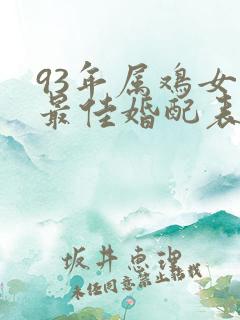 93年属鸡女
最佳婚配表
坂井惠理
未经同意禁止转载